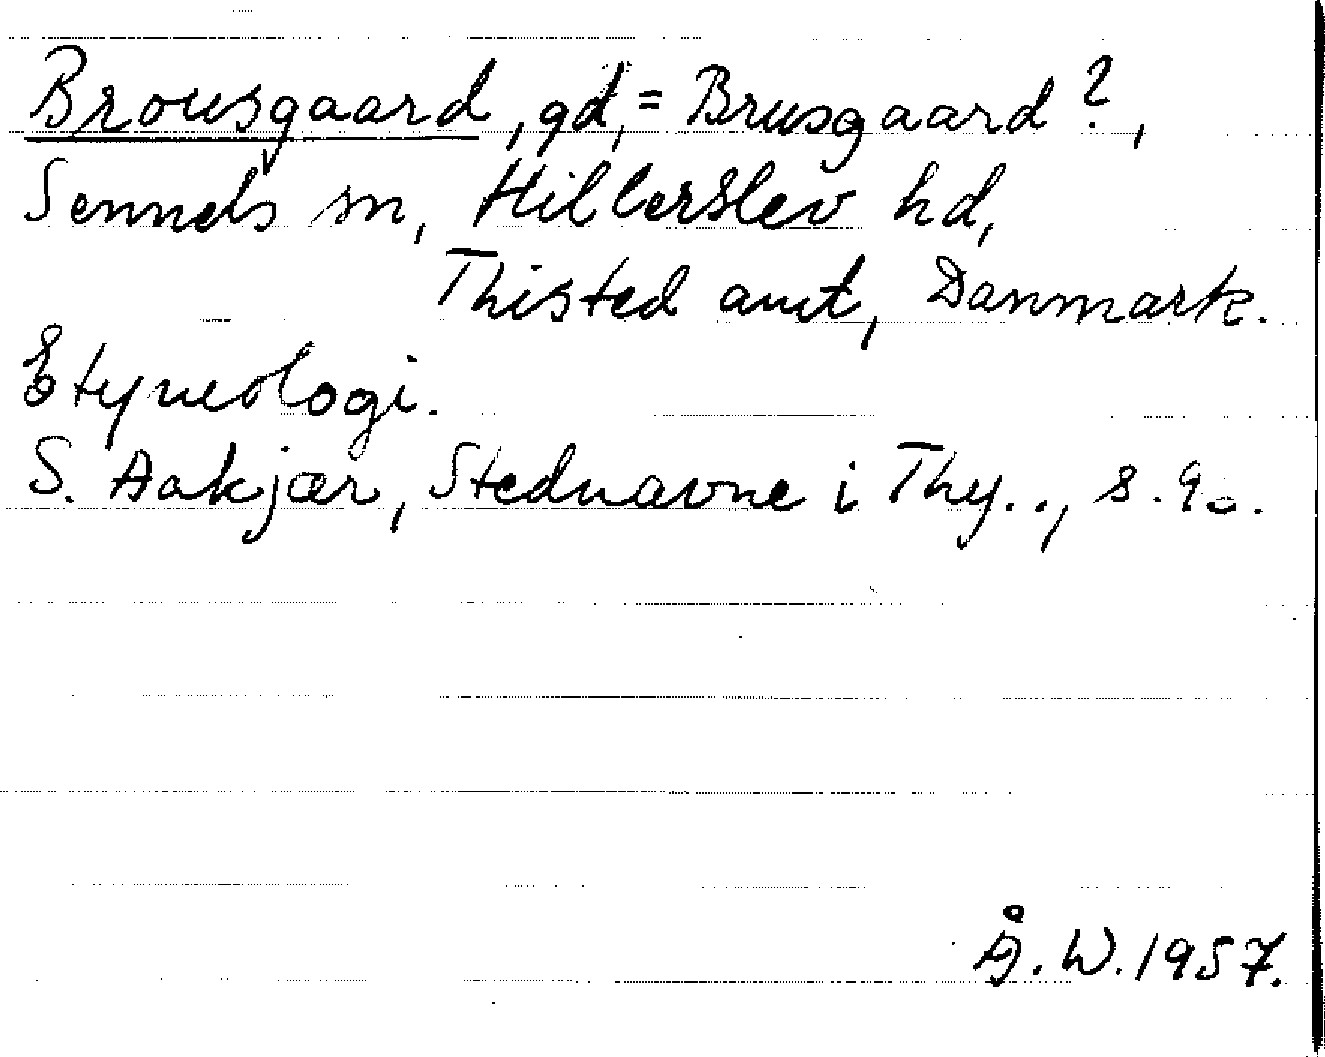 Brousgaard, gd, = Brusgaard?,
Sennels sn, Hillerslev hd,
Thisted amt, Danmark.
Etymologi.
S. Aakjær, Stednavne i Thy.., s. 90.
Å. W. 1957.